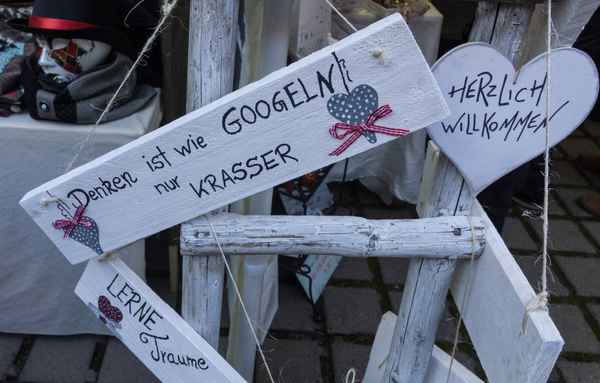 !!! Denken ist wie GOOGELN!!
nur KRASSER
HERZLICH
WILLKOMMEN
LERNE
Träume